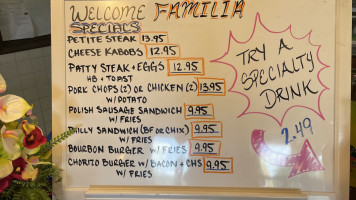 WELCOME FAMILIA
SPECIALS
PETITE STEAK 13.95
CHEESE KABOBS 12.95
PATTY STEAK + EGGS 12.95
HB + TOAST
PORK CHOPS (2) OR CHICKEN (2) 13.95
W/ POTATO
POLISH SAUSAGE SANDWICH 9.95
W/ FRIES
PHILLY SANDWICH (BF OR CHIX) 9.95
W/ FRIES
BOURBON BURGER W/ FRIES 9.95
CHORITO BURGER W/ BACON + CHS 9.95
W/ FRIES
TRY A
SPECIALTY
DRINK
2.49